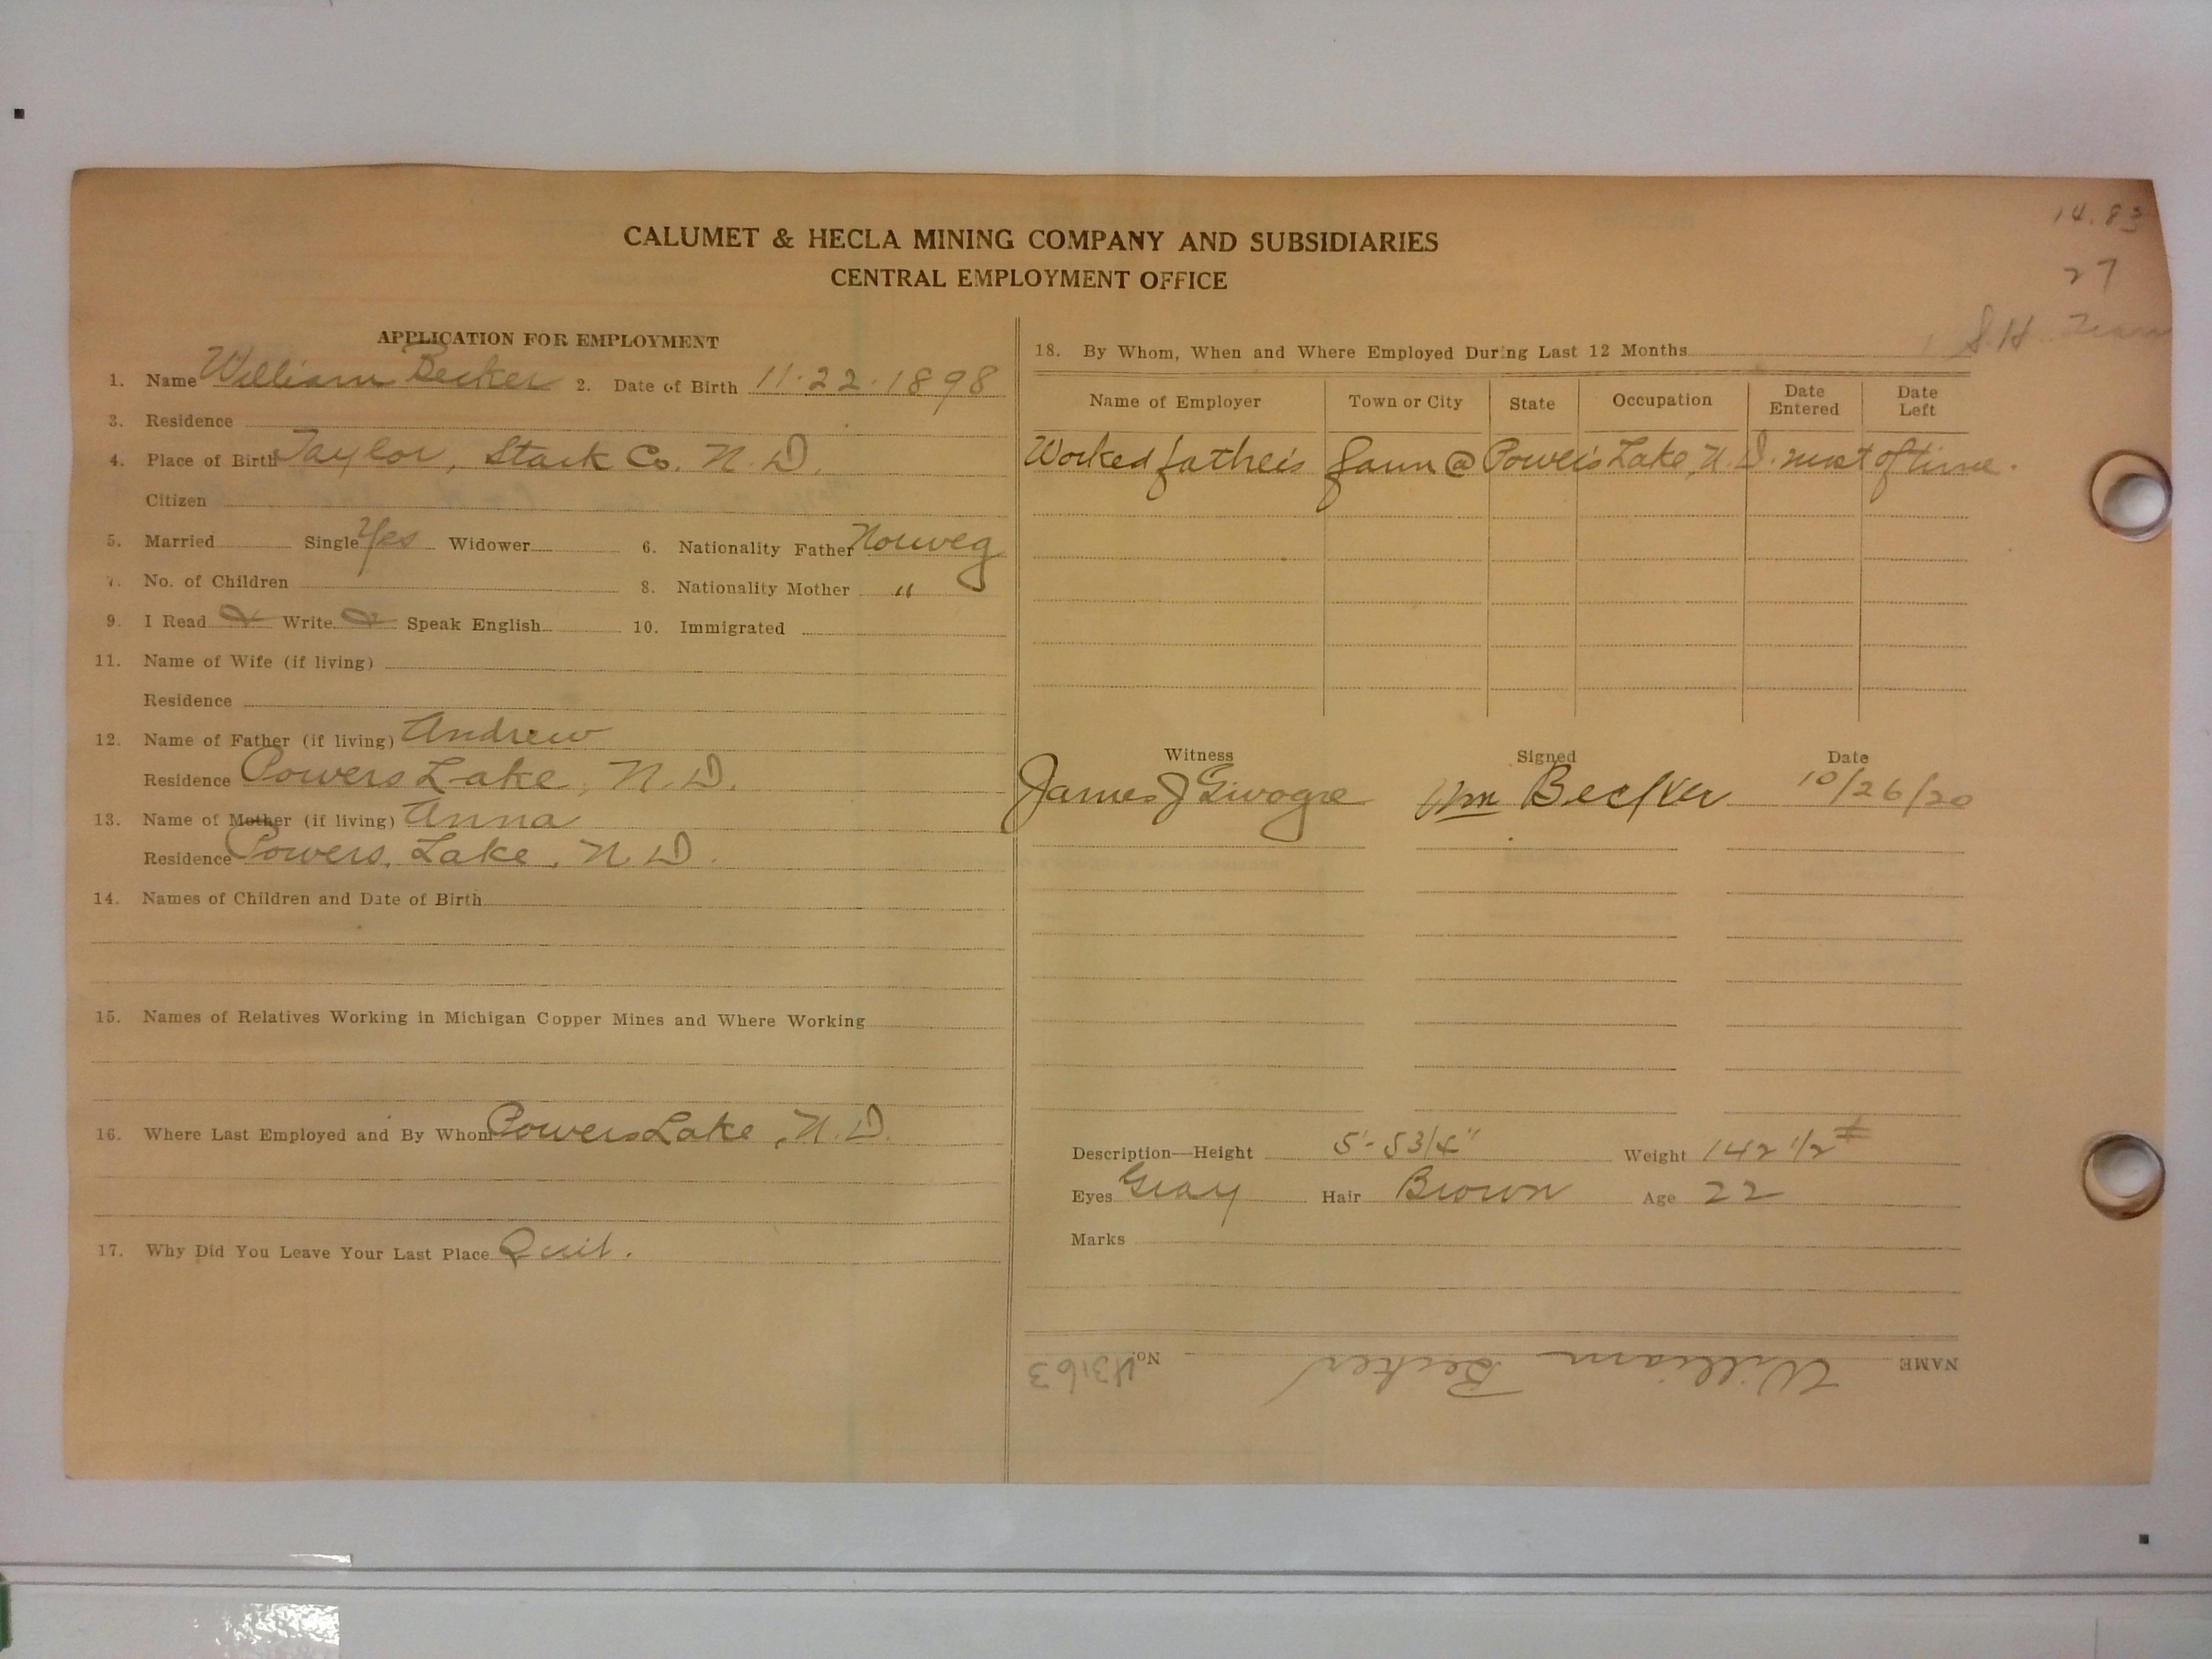 14.83
27
CALUMET & HECLA MINING COMPANY AND SUBSIDIARIES
CENTRAL EMPLOYMENT OFFICE
APPLICATION FOR EMPLOYMENT
1. Name William Becker 2. Date of Birth 11-22-1898
3. Residence
4. Place of Birth Taylor, Stark Co. N. D.
Citizen
5. Married Single Yes Widower 6. Nationality Father Norweg
7. No. of Children 8. Nationality Mother "
9. I Read Write Speak English 10. Immigrated
11. Name of Wife (if living)
Residence
12. Name of Father (if living) Andrew
Residence Powers Lake, N. D.
13. Name of Mother (if living) Anna
Residence Powers Lake, N. D.
14. Names of Children and Date of Birth
15. Names of Relatives Working in Michigan Copper Mines and Where Working
16. Where Last Employed and By Whom Powers Lake, N. D.
17. Why Did You Leave Your Last Place Quit.
S. H.
18. By Whom, When and Where Employed During Last 12 Months
Name of Employer Town or City State Occupation Date Entered Date Left
Worked father's farm @ Power's Lake, N. D. most of time.
Witness Signed Date
James J Wm Becker 10/26/20
Description—Height 5'-5 3/4" Weight 142 1/2 #
Eyes Gray Hair Brown Age 22
Marks
NAME William Becker No. 43163